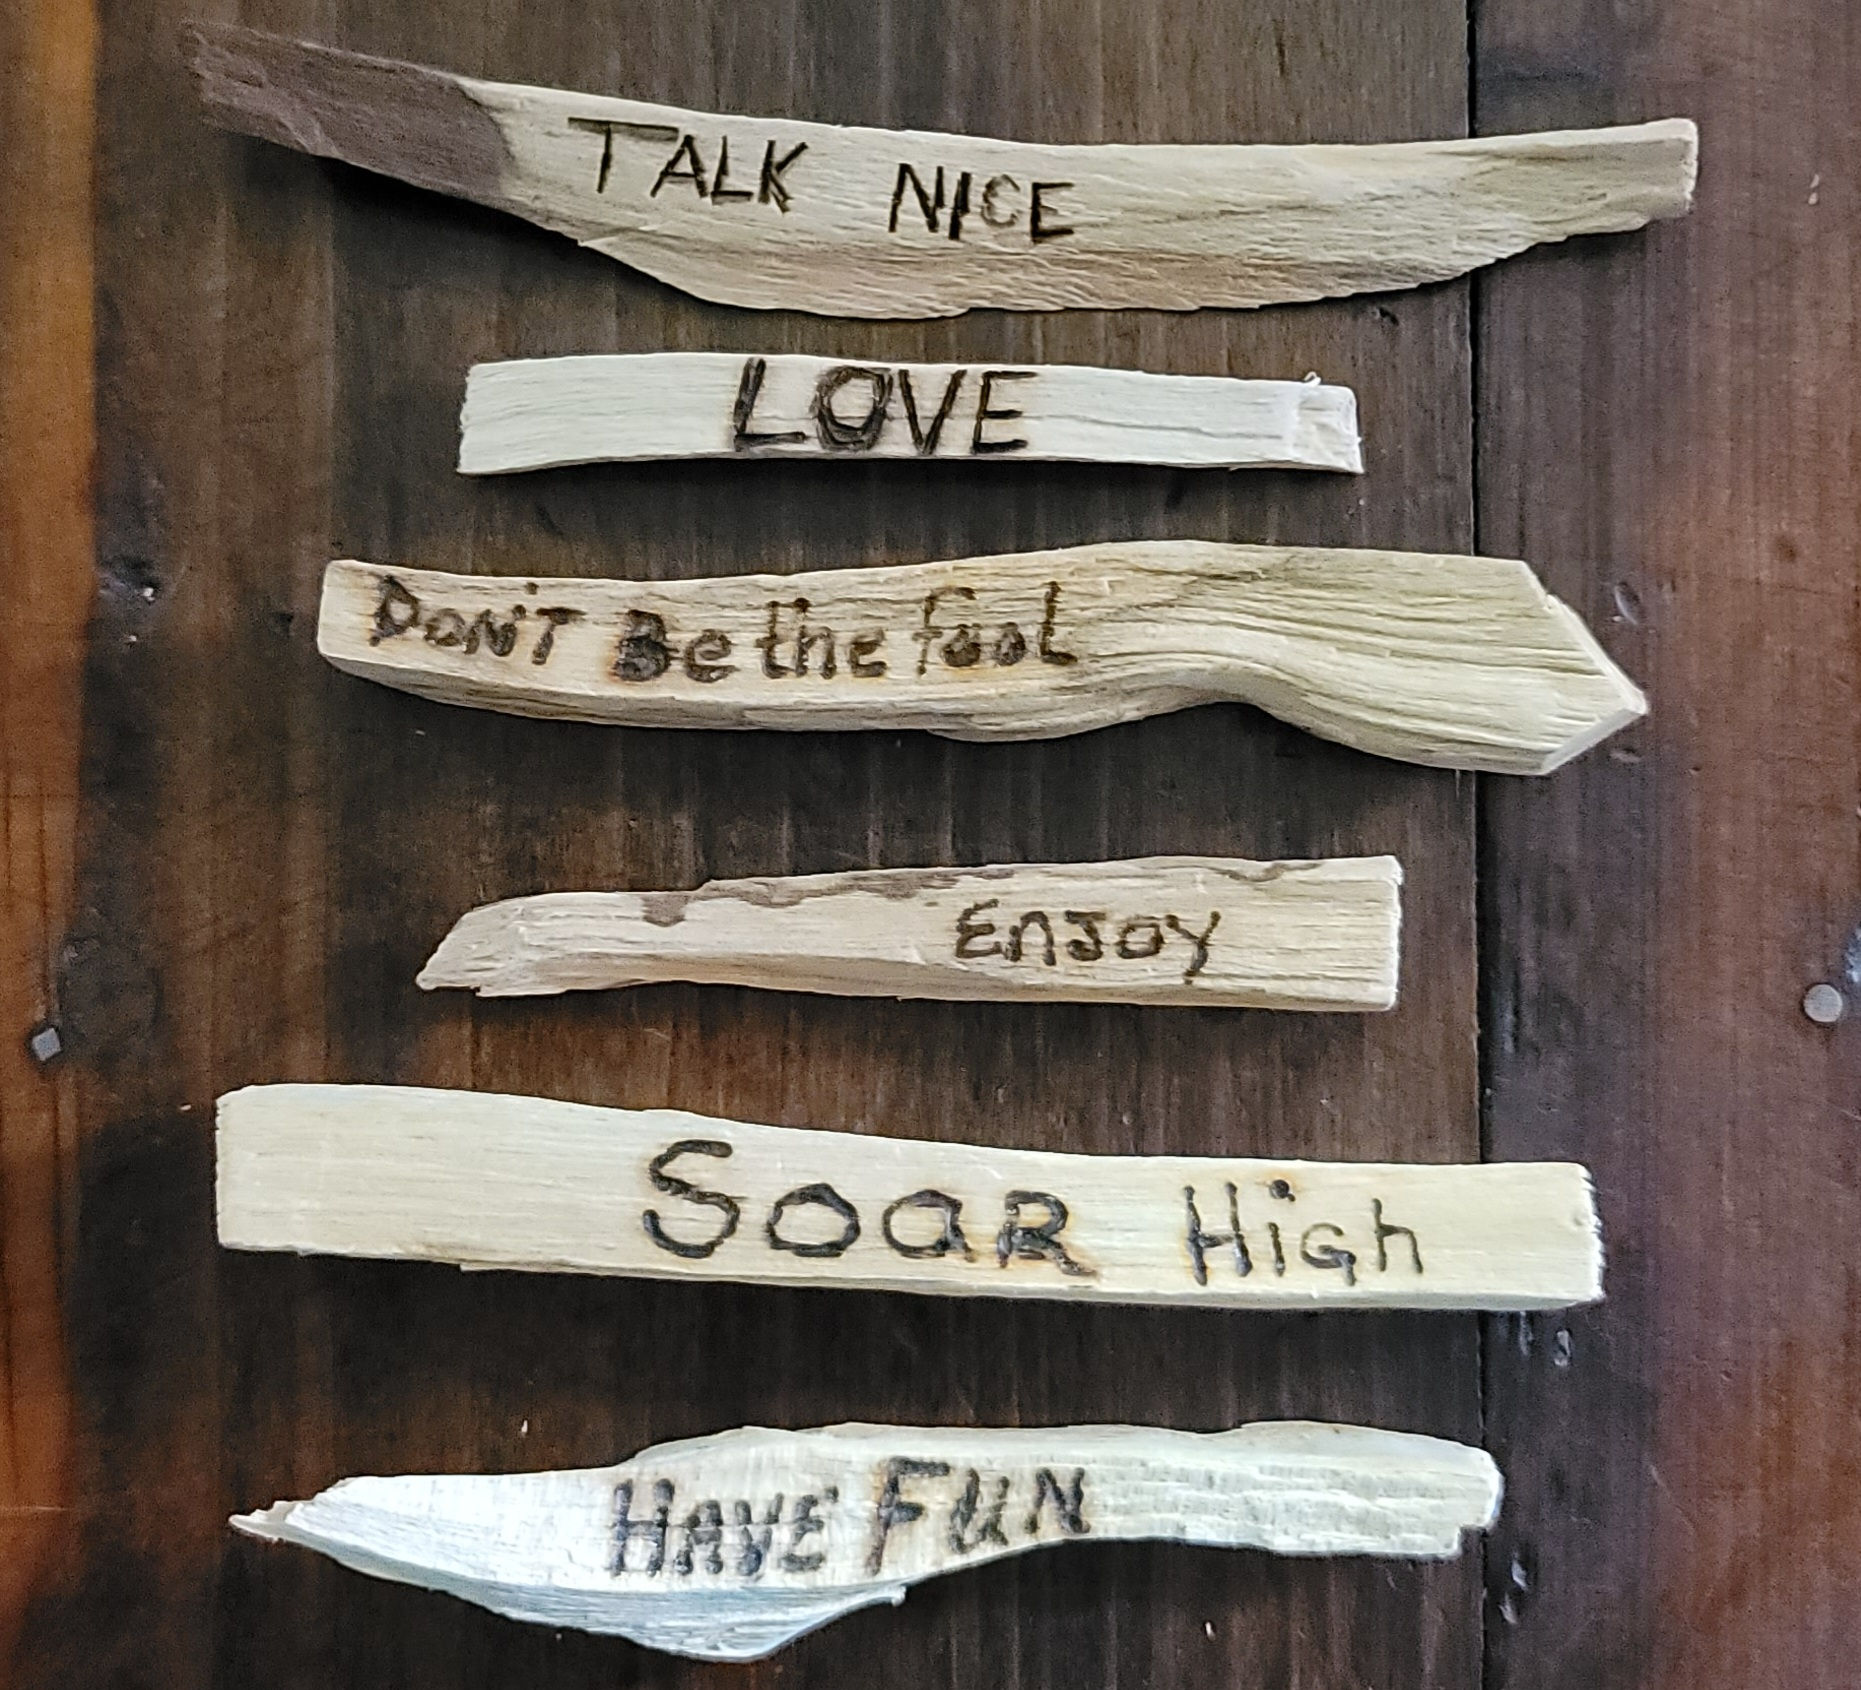 TALK NICE
LOVE
DON'T Be the fool
EnJoy
SoaR HiGh
HAVE FUN